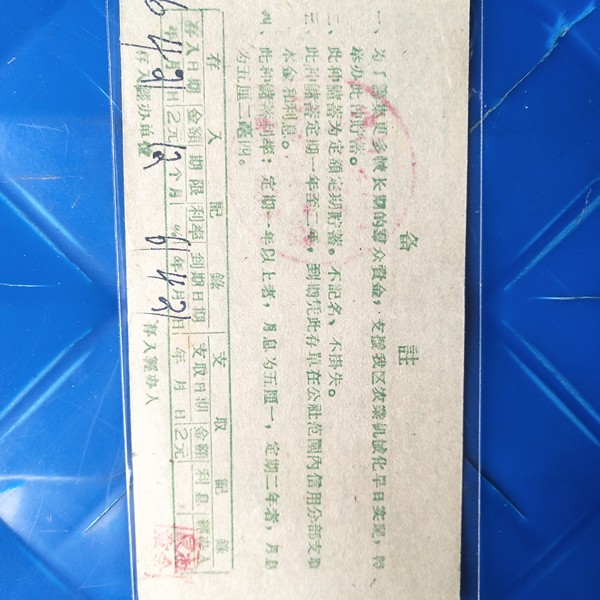 备註
一、为了筹集更多較长期的羣众資金，支援我区农業机械化早日实现，特
举办此种貯蓄。
二、此种儲蓄为定額定期貯蓄。不記名、不掛失。
三、此种儲蓄定期一年至二年，到期凭此存单在公社范圍內信用分部支取
本金和利息。
四、此种儲蓄利率：定期一年以上者，月息为五厘一，定期二年者，月息
为五厘二毫四。
存入記錄 支取記錄
存入日期 金額 期限 利率 到期日期 支取日期 金額 利息 經办人
年4月21日 2元 12个月 ‰ 61年4月21日 年月日 2元
存入經办人